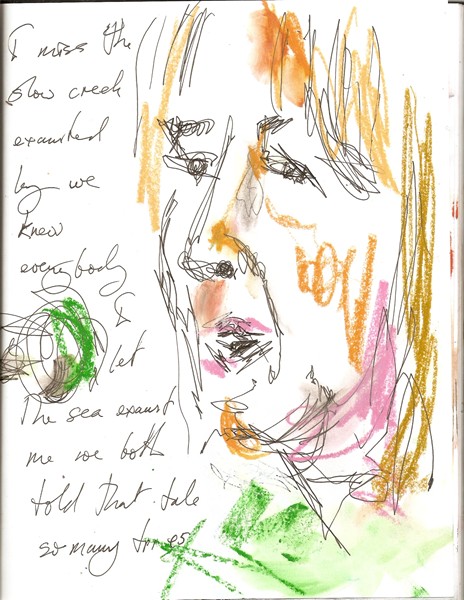 I miss the
slow creek
exausted
by we
knew
everybody
I
let
The sea exaust
me we both
told that tale
so many times